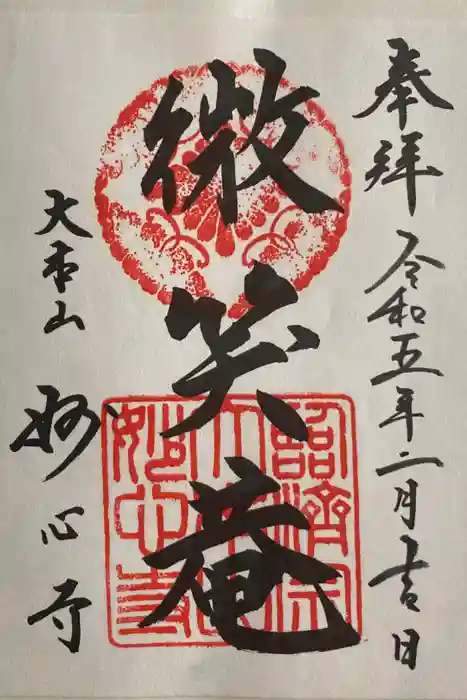 奉拝 令和五年二月吉日
微笑庵
大本山 妙心寺
臨済宗
大本山
妙心寺